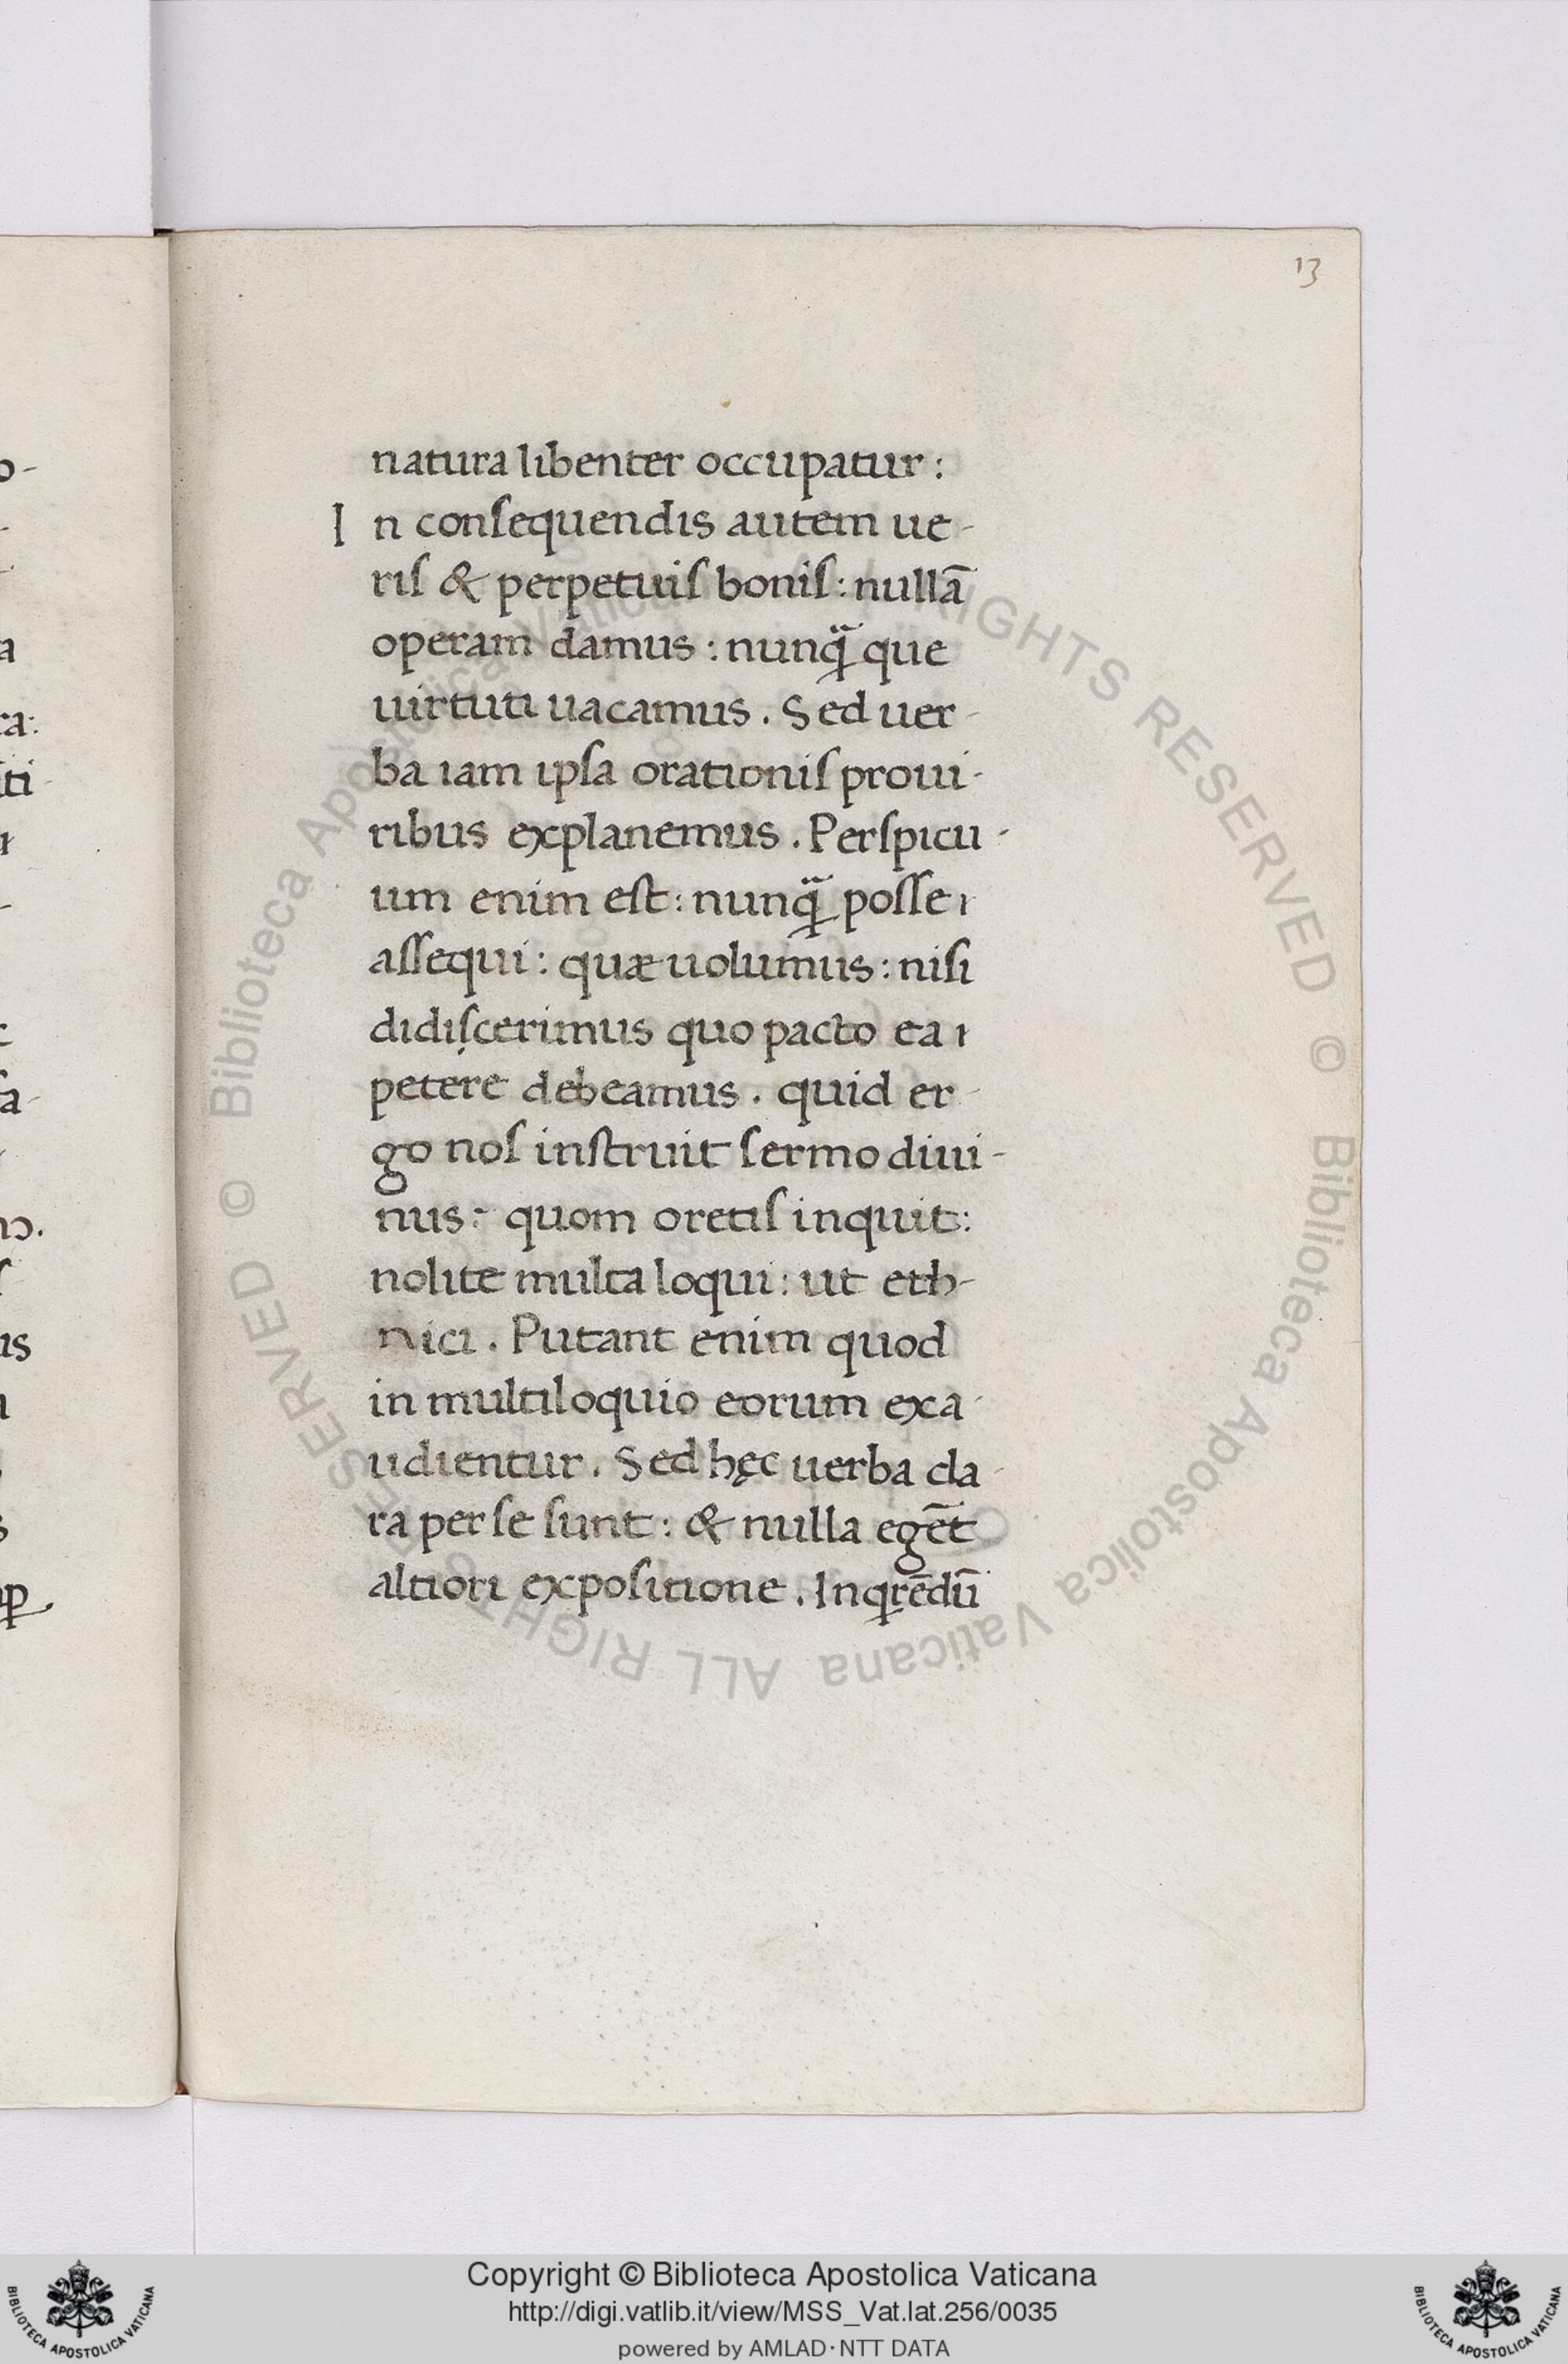 13
natura libenter occupatur :
In consequendis autem ue-
ris & perpetuis bonis : nullā
operam damus : nunq̄ que
uirtuti uacamus . Sed uer-
ba iam ipsa orationis proui-
ribus explanemus . Perspicu-
um enim est : nunq̄ posse
assequi : quæ uolumus : nisi
didiscerimus quo pacto ea
petere debeamus . quid er-
go nos instruit sermo diui-
nus : quom oretis inquit :
nolite multa loqui : ut eth-
nici . Putant enim quod
in multiloquio eorum exa-
udientur . Sed hęc uerba cla-
ra per se sunt : & nulla egēt
altiori expositione . Inqrēdū
Copyright © Biblioteca Apostolica Vaticana
http://digi.vatlib.it/view/MSS_Vat.lat.256/0035
powered by AMLAD·NTT DATA
BIBLIOTECA APOSTOLICA VATICANA
BIBLIOTECA APOSTOLICA VATICANA
© Biblioteca Apostolica Vaticana ALL RIGHTS RESERVED © Biblioteca Apostolica Vaticana ALL RIGHTS RESERVED